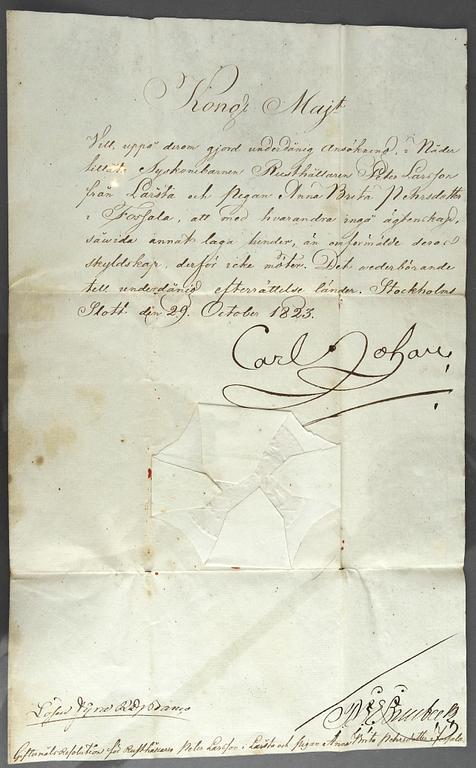 Kongl Majt
Vill, uppå derom gjord underdånig ansökning, i Nåder
tillåta Syskonebarnen Rusthållaren Peter Larsson
från Larsta och Pigan Anna Brita Pehrsdotter
i Forsala, att med hvarandra ingå ägtenskap,
såvida annat laga hinder, än omförmälde deras
skyldskap, derför icke möter. Det vederbörande
till underdånig efterrättelse länder. Stockholms
Slott den 29. October 1823.
Carl Johan
Giftermåls Resolution för Rusthållaren Peter Larsson i Larsta och Pigan Anna Brita Pehrsdotter i Forsala